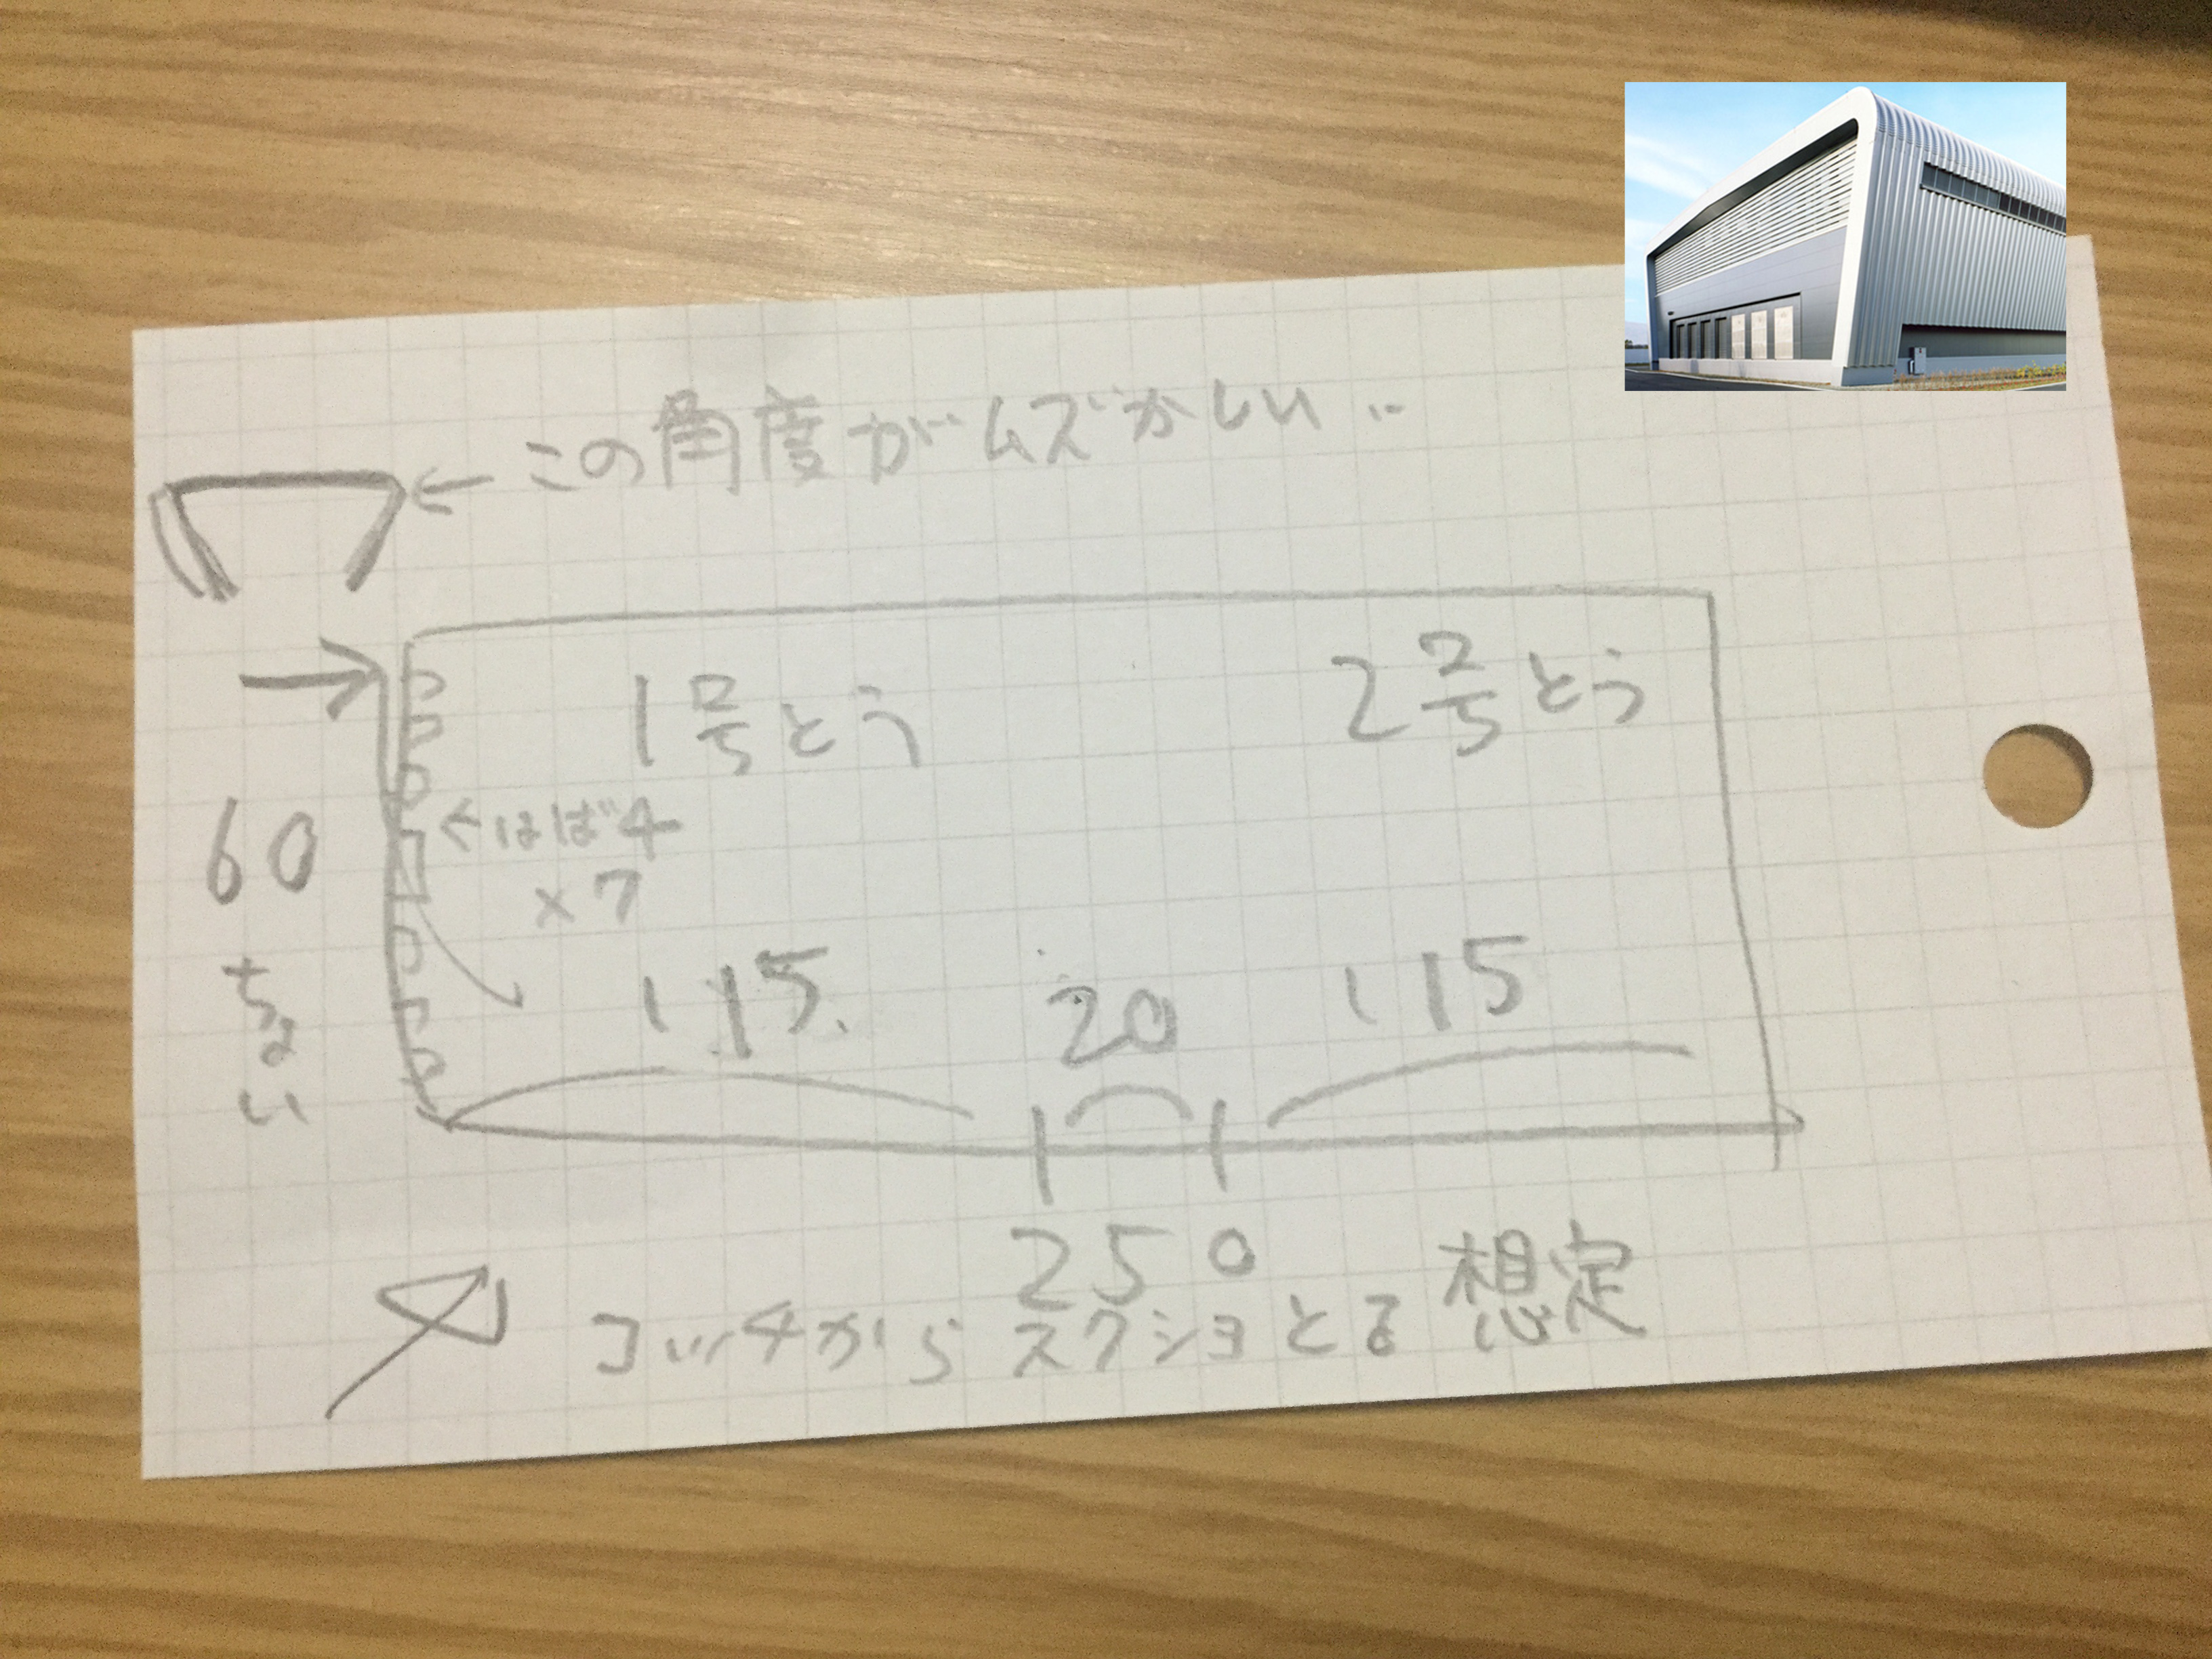 この角度がムズかしい‥
1号とう
2号とう
60ちょい
←はば4
×7
115
20
115
250
コッチからスクショとる想定